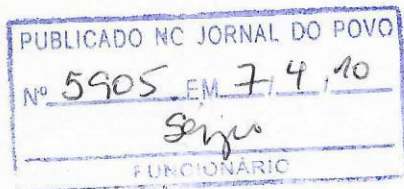 PUBLICADO NO JORNAL DO POVO
Nº 5905 EM 7, 4, 10
FUNCIONÁRIO